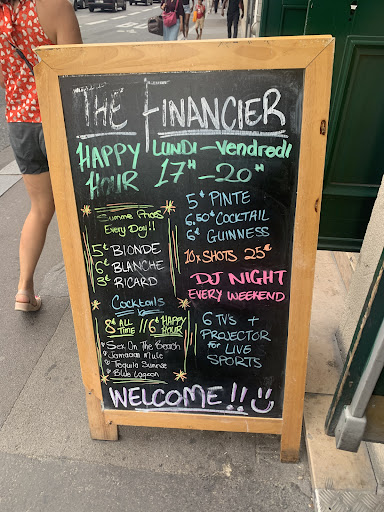 THE FINANCIER
HAPPY HOUR
LUNDI - Vendredi
17H - 20H
Summer Prices
Every Day!!
5€ BLONDE
6€ BLANCHE
3€ RICARD
Cocktails
8€ ALL TIME // 6€ HAPPY HOUR
Sex On The Beach
Jamaican Mule
Tequila Sunrise
Blue Lagoon
5€ PINTE
6.50€ COCKTAIL
6€ GUINNESS
10x SHOTS 25€
DJ NIGHT
EVERY WEEKEND
6 TVs +
PROJECTOR
for LIVE
SPORTS
WELCOME!!